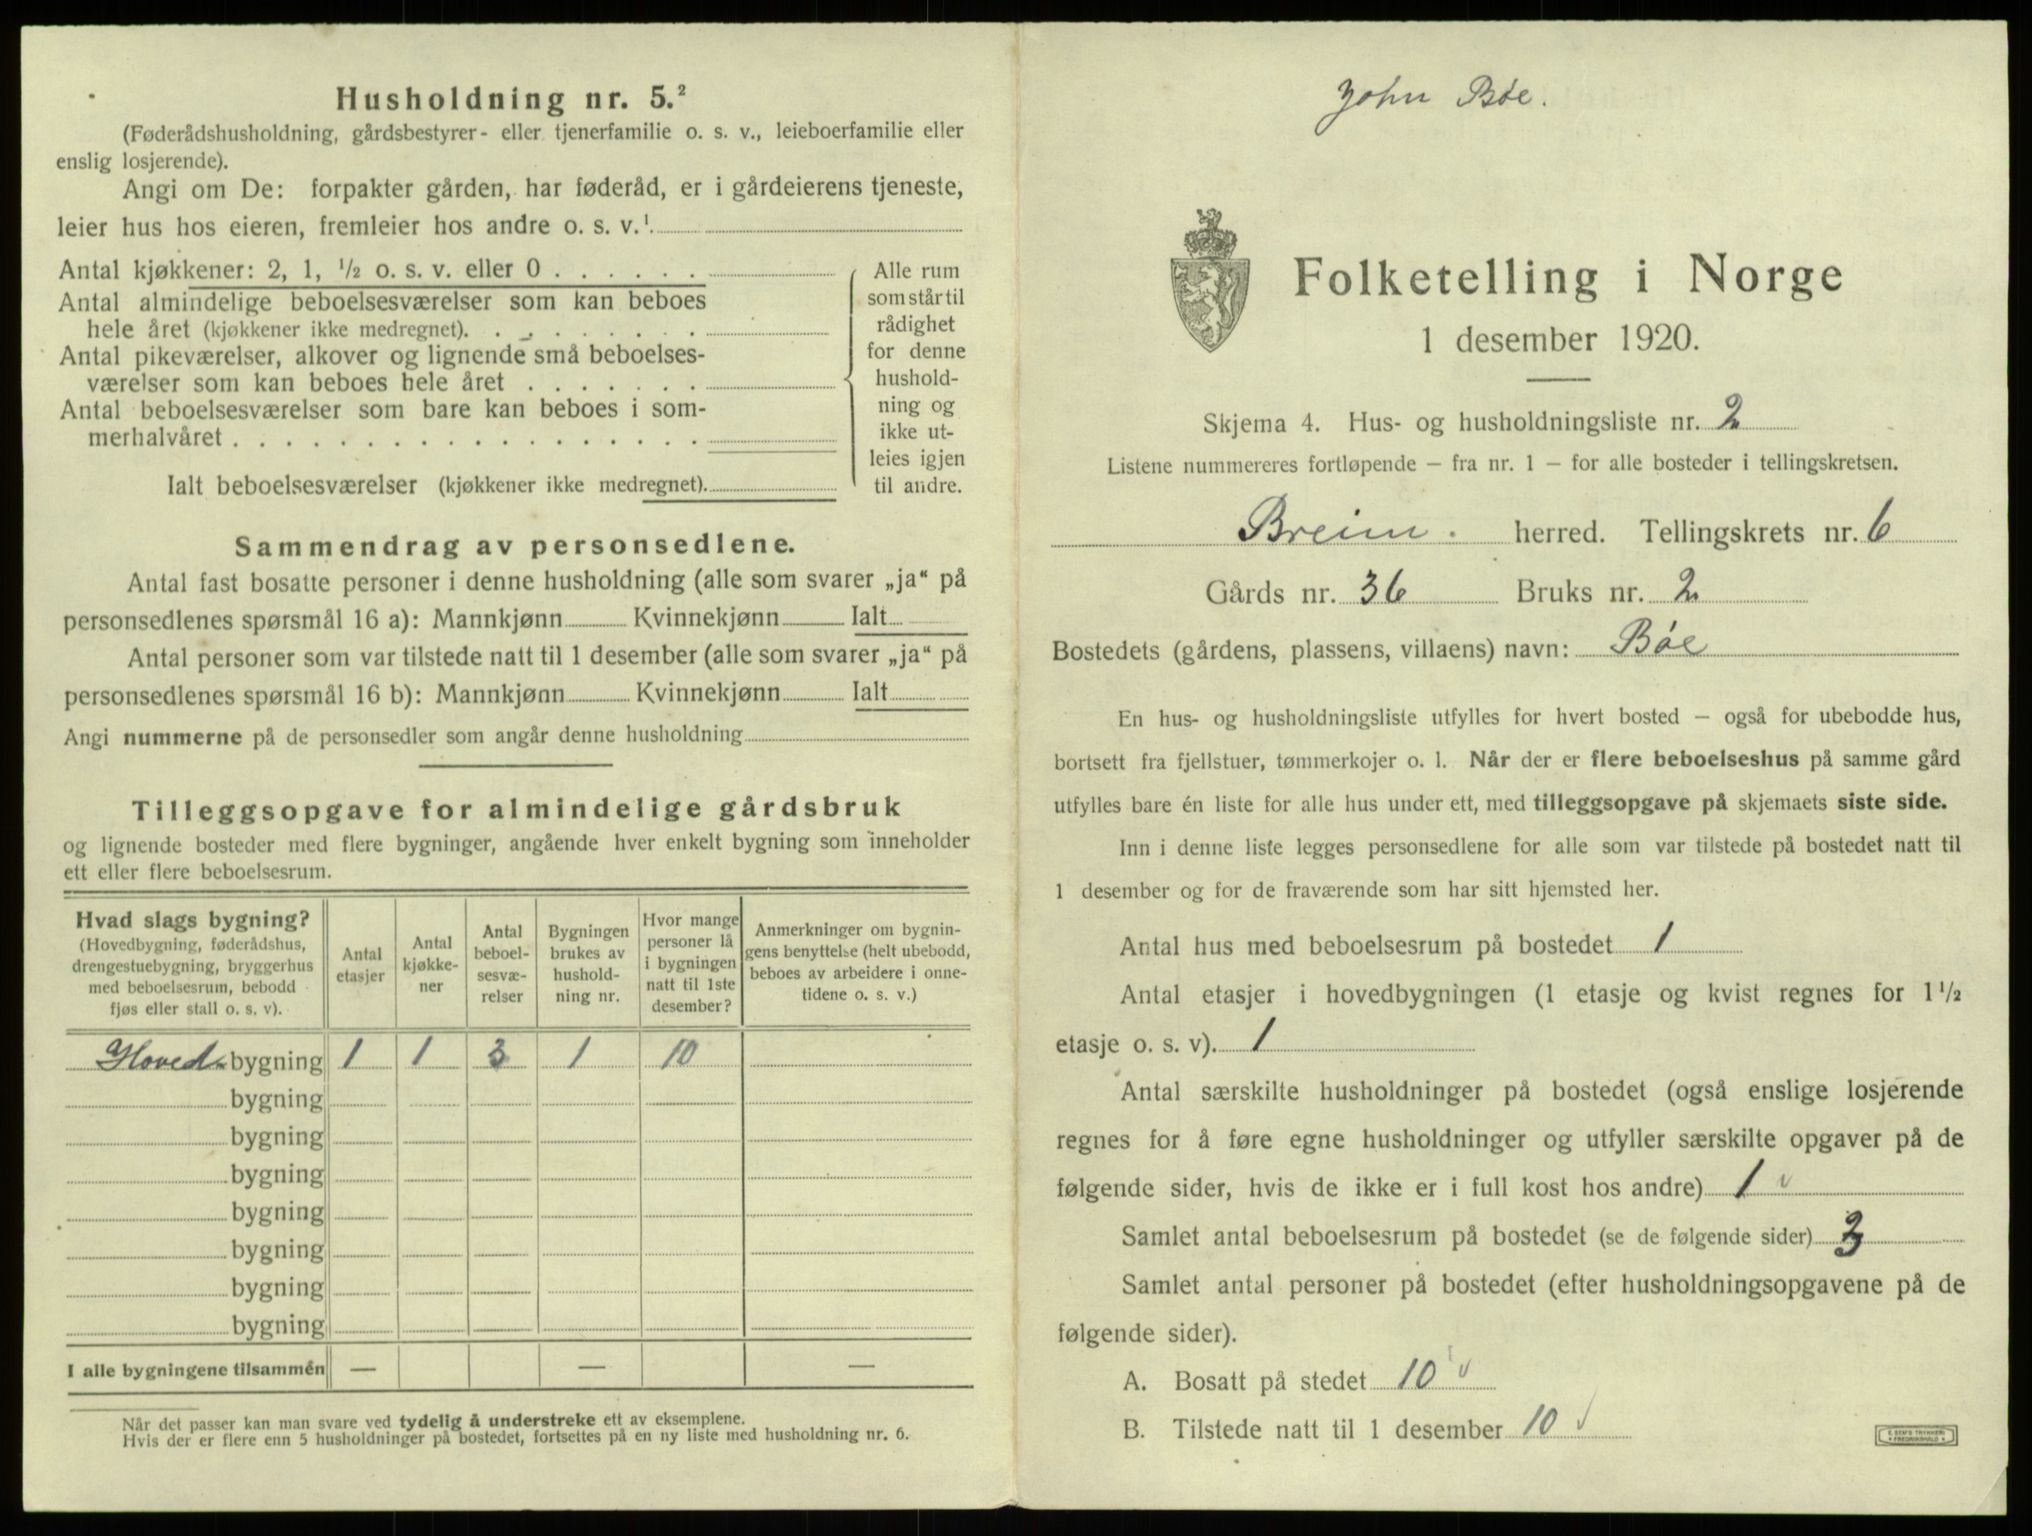 Husholdning nr. 5.²
(Føderådshusholdning, gårdsbestyrer- eller tjenerfamilie o. s. v., leieboerfamilie eller
enslig losjerende).
Angi om De: forpakter gården, har føderåd, er i gårdeierens tjeneste,
leier hus hos eieren, fremleier hos andre o. s. v.¹
Antal kjøkkener: 2, 1, ½ o. s. v. eller 0 . . . . . .
Antal almindelige beboelsesværelser som kan beboes
hele året (kjøkkener ikke medregnet). . . . . . . . .
Antal pikeværelser, alkover og lignende små beboelses-
værelser som kan beboes hele året . . . . . . .
Antal beboelsesværelser som bare kan beboes i som-
merhalvåret . . . . . . . . . . . . . . . . . .
Ialt beboelsesværelser (kjøkkener ikke medregnet).
Alle rum
som står til
rådighet
for denne
hushold-
ning og
ikke ut-
leies igjen
til andre.
Sammendrag av personsedlene.
Antal fast bosatte personer i denne husholdning (alle som svarer „ja“ på
personsedlenes spørsmål 16 a): Mannkjønn Kvinnekjønn Ialt
Antal personer som var tilstede natt til 1 desember (alle som svarer „ja“ på
personsedlenes spørsmål 16 b): Mannkjønn Kvinnekjønn Ialt
Angi nummerne på de personsedler som angår denne husholdning
Tilleggsopgave for almindelige gårdsbruk
og lignende bosteder med flere bygninger, angående hver enkelt bygning som inneholder
ett eller flere beboelsesrum.
Hvad slags bygning?
(Hovedbygning, føderådshus,
drengestuebygning, bryggerhus
med beboelsesrum, bebodd
fjøs eller stall o. s. v).
Antal
etasjer
Antal
kjøkke-
ner
Antal
beboel-
sesvæ-
relser
Bygningen
brukes av
hushold-
ning nr.
Hvor mange
personer lå
i bygningen
natt til 1ste
desember?
Anmerkninger om bygnin-
gens benyttelse (helt ubebodd,
beboes av arbeidere i onne-
tidene o. s. v.)
Hoved- bygning 1 1 3 1 10
bygning
bygning
bygning
bygning
bygning
bygning
bygning
I alle bygningene tilsammen — — —
Når det passer kan man svare ved tydelig å understreke ett av eksemplene.
Hvis der er flere enn 5 husholdninger på bostedet, fortsettes på en ny liste med husholdning nr. 6.
John Bøe.
Folketelling i Norge
1 desember 1920.
Skjema 4. Hus- og husholdningsliste nr. 2
Listene nummereres fortløpende — fra nr. 1 — for alle bosteder i tellingskretsen.
Breim. herred. Tellingskrets nr. 6
Gårds nr. 36 Bruks nr. 2
Bostedets (gårdens, plassens, villaens) navn: Bøe
En hus- og husholdningsliste utfylles for hvert bosted — også for ubebodde hus,
bortsett fra fjellstuer, tømmerkojer o. l. Når der er flere beboelseshus på samme gård
utfylles bare én liste for alle hus under ett, med tilleggsopgave på skjemaets siste side.
Inn i denne liste legges personsedlene for alle som var tilstede på bostedet natt til
1 desember og for de fraværende som har sitt hjemsted her.
Antal hus med beboelsesrum på bostedet 1
Antal etasjer i hovedbygningen (1 etasje og kvist regnes for 1½
etasje o. s. v). 1
Antal særskilte husholdninger på bostedet (også enslige losjerende
regnes for å føre egne husholdninger og utfyller særskilte opgaver på de
følgende sider, hvis de ikke er i full kost hos andre) 1 ✓
Samlet antal beboelsesrum på bostedet (se de følgende sider) 3
Samlet antal personer på bostedet (efter husholdningsopgavene på de
følgende sider).
A. Bosatt på stedet 10 ✓
B. Tilstede natt til 1 desember 10 ✓
E. SEM'S TRYKKERI
FREDRIKSHALD